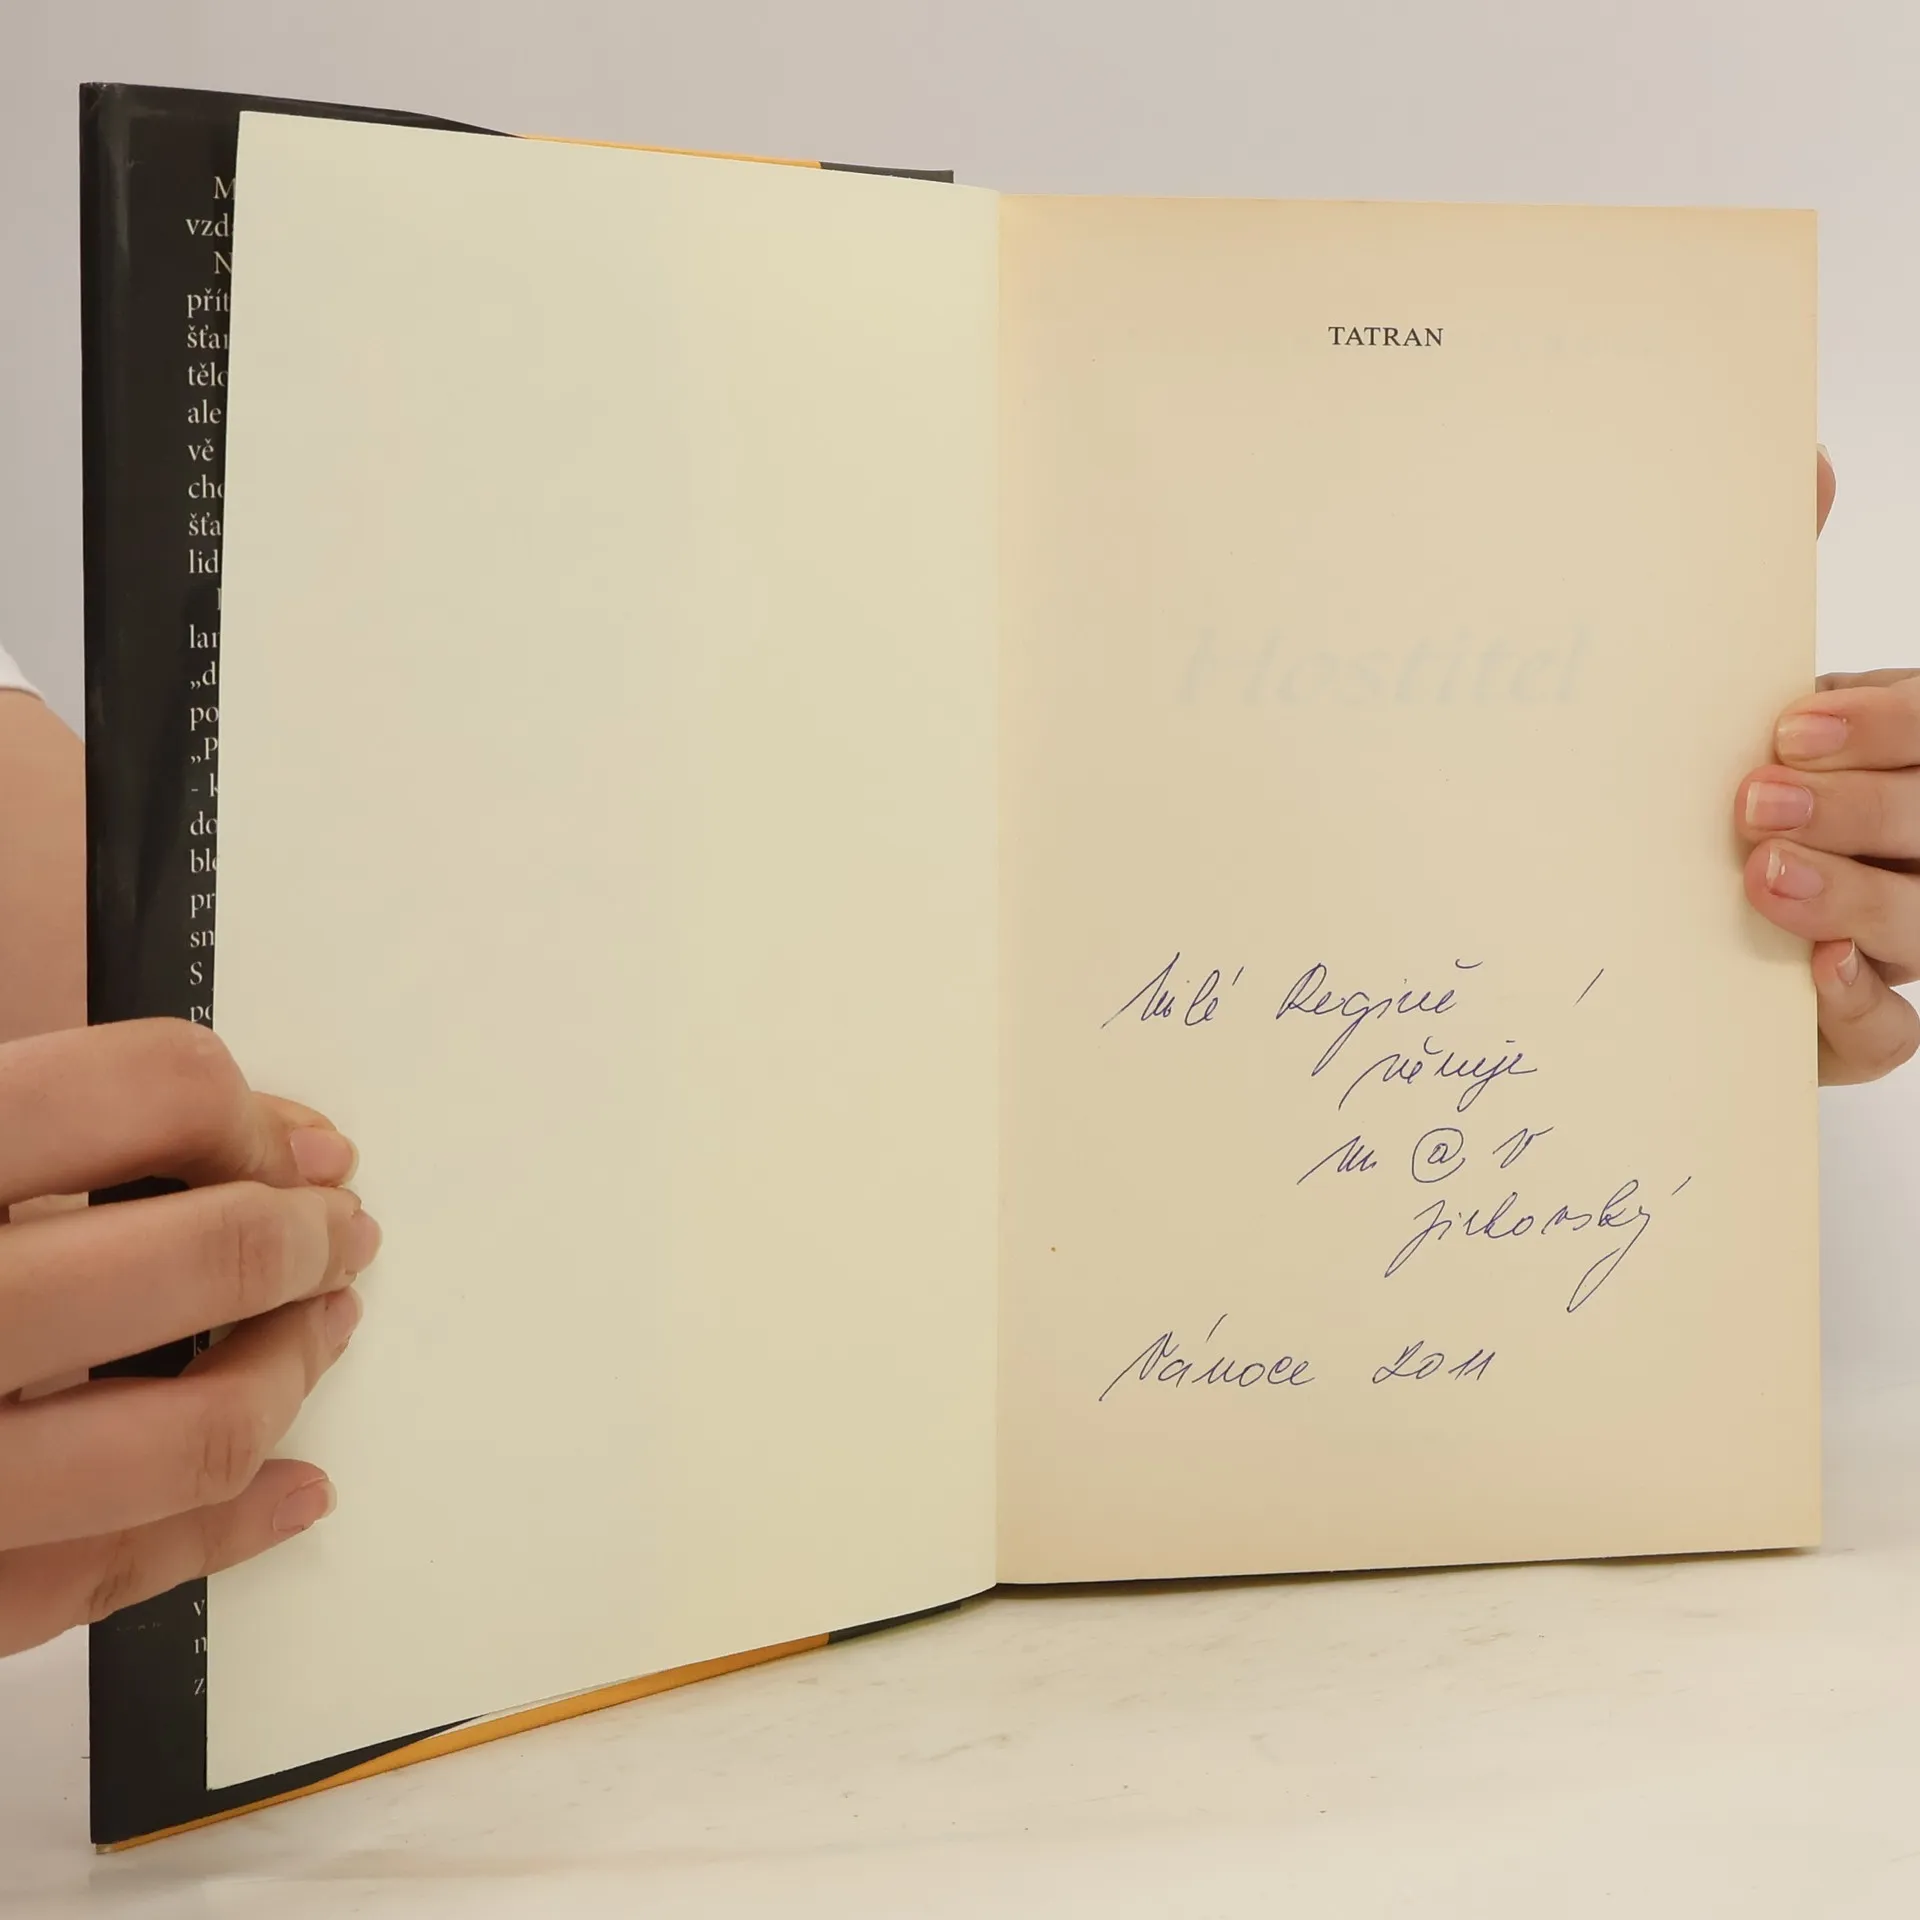 M
vzd
N
přít
šťa
tělo
ale
vě
cho
šťa
lid
lar
„d
po
„P
- k
do
blo
pr
sm
S
po
k
v
n
z
TATRAN
Hostitel
Milé Regině !
věnuje
m @ v
jirkovský
Vánoce 2011